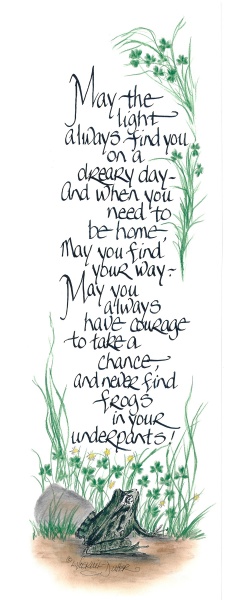 May the
light
always find you
on a
dreary day-
And when you
need to
be home,
May you find
your way-
May you
always
have courage
to take a
chance,
and never find
frogs
in your
underpants!